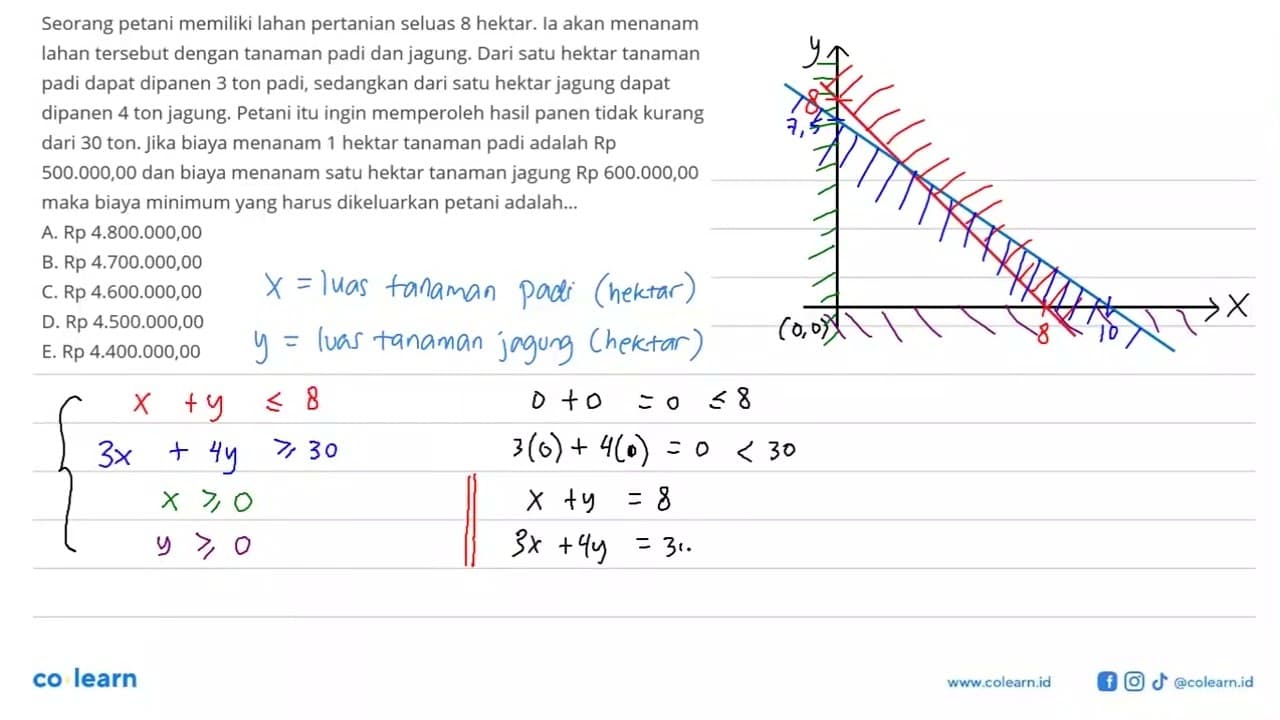 Seorang petani memiliki lahan pertanian seluas 8 hektar. Ia akan menanam
lahan tersebut dengan tanaman padi dan jagung. Dari satu hektar tanaman
padi dapat dipanen 3 ton padi, sedangkan dari satu hektar jagung dapat
dipanen 4 ton jagung. Petani itu ingin memperoleh hasil panen tidak kurang
dari 30 ton. Jika biaya menanam 1 hektar tanaman padi adalah Rp
500.000,00 dan biaya menanam satu hektar tanaman jagung Rp 600.000,00
maka biaya minimum yang harus dikeluarkan petani adalah...
A. Rp 4.800.000,00
B. Rp 4.700.000,00
C. Rp 4.600.000,00
D. Rp 4.500.000,00
E. Rp 4.400.000,00
x = luas tanaman padi (hektar)
y = luas tanaman jagung (hektar)
y
8
7,5
(0,0)
8
10
X
x + y ≤ 8
3x + 4y ≥ 30
x ≥ 0
y ≥ 0
0 + 0 = 0 ≤ 8
3(0) + 4(0) = 0 < 30
x + y = 8
3x + 4y = 30
co learn
www.colearn.id
@colearn.id